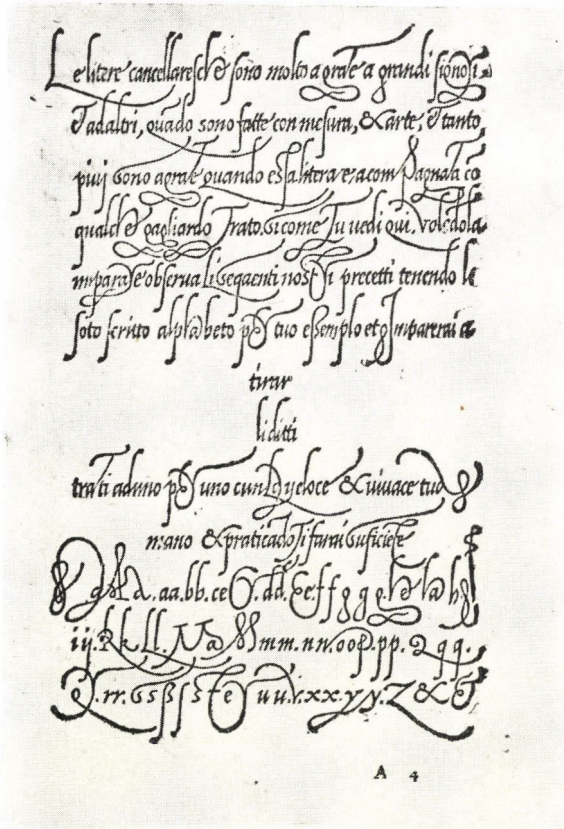 Le litere cancellaresche sono molto a grate a grandi signori
et ad altri, quado sono fatte con mesura, & arte, e tanto
piu sono agrate quando essa litera e acompagnata co
qualche gagliardo Trato. Si come Tu vedi qui. Volédola
imparare observa li sequenti nostri precetti tenendo le
soto scrito alphabeto per tuo essemplo et Imparerai a
tirar
li ditti
trati adimo uno cun veloce & vivace tua
mano & praticado Ti farai suficiéte
a.aa.bb.cc.dd.&e.ffggg.hhh
ij.kkll.mm.nn.oop.pp.qq.
.rr.sssste uuv.xx.yy.Z&
A 4